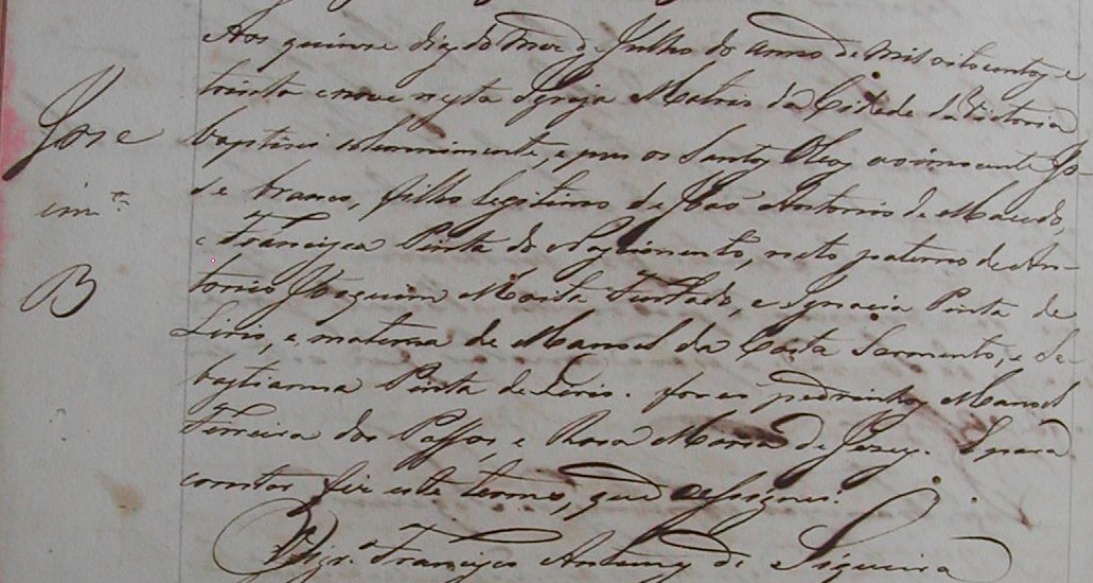 Aos quinse dias do mez de Julho do anno de mil oito centos e
trinta e nove nesta Igreja Matris da Cidade da Victoria
baptisei solemnimente, e pus os Santos Oleos ao innocente Jo-
se branco, filho legitimo de João Antonio de Macedo,
e Francisca Pinta do Nascimento, neto paterno de An-
tonio Joaquim Motta Furtado, e Ignacia Pinta de
Liris, e materna de Manoel da Costa Sarmento, e Se-
bastianna Pinta de Liris. forão padrinhos Manoel
Ferreira dos Passos, e Rosa Maria de Jesus. E para
constar fiz este termo, que assignei.
Vigr.º Francisco Antunes de Siqueira
Jose
inn.te
B